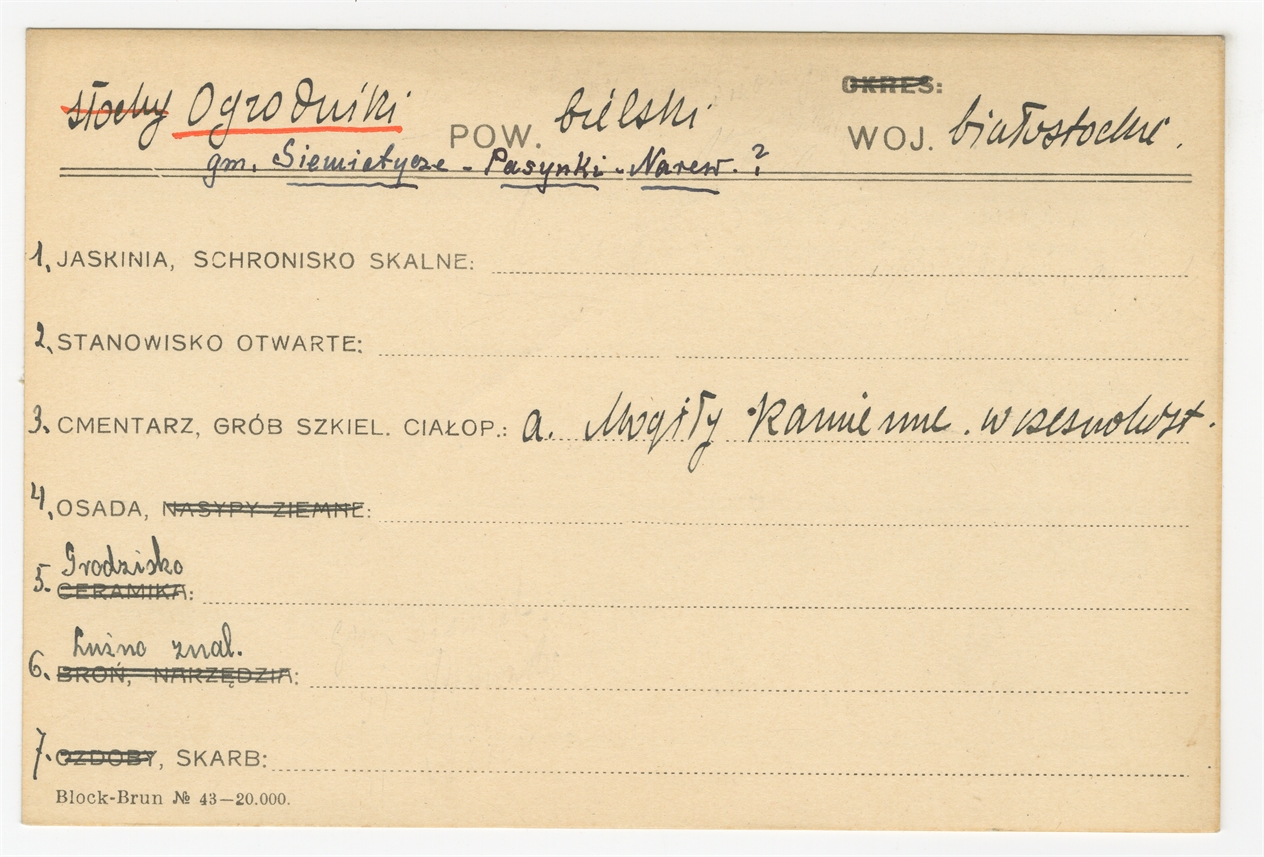 Stochy Ogrodniki POW. bielski OKRES: WOJ. białostockie.
gm. Siemiatycze - Pasynki - Narew. ?
1. JASKINIA, SCHRONISKO SKALNE:
2. STANOWISKO OTWARTE:
3. CMENTARZ, GRÓB SZKIEL. CIAŁOP.: a. Mogiły kamienne. wczesnohist.
4. OSADA, NASYPY ZIEMNE:
Grodzisko
5. CERAMIKA:
Luźno znal.
6. BROŃ, NARZĘDZIA:
7. OZDOBY, SKARB:
Block-Brun № 43—20.000.